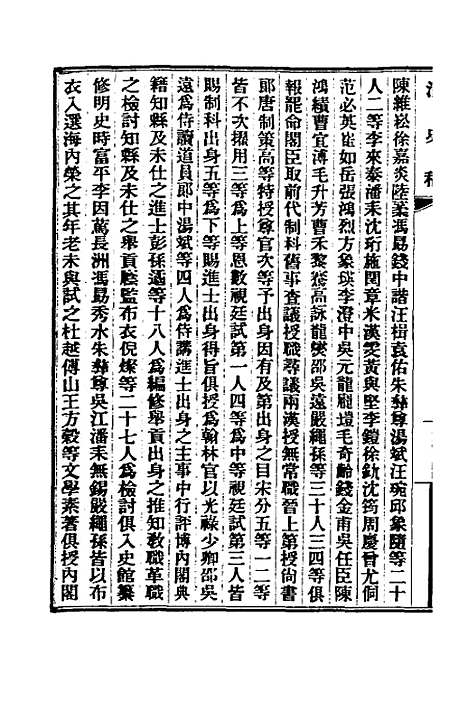 陳維崧徐嘉炎陸葇馮勗錢中諧汪楫袁佑朱彝尊湯斌汪琬邱象隨等二十
人二等李來泰潘耒沈珩施閏章米漢雯黃與堅李鎧徐釚沈筠周慶曾尤侗
范必英崔如岳張鴻烈方象瑛李澄中吳元龍龐塏毛奇齡錢金甫吳任臣陳
鴻績曹宜溥毛升芳曹禾黎騫高詠龍燮邵吳遠嚴繩孫等三十人三四等俱
報罷命閣臣取前代制科舊事查議授職尋議兩漢授無常職晉上第授尚書
郎唐制策高等特授尊官次等予出身因有及第出身之目宋分五等一二等
皆不次擢用三等爲上等恩數視廷試第一人四等爲中等視廷試第三人皆
賜制科出身五等爲下等賜進士出身得旨俱授爲翰林官以光祿少卿邵吳
遠爲侍讀道員郎中湯斌等四人爲侍講進士出身之主事中行評博內閣典
籍知縣及未仕之進士彭孫遹等十八人爲編修舉貢出身之推知敎職革職
之檢討知縣及未仕之舉貢廕監布衣倪燦等二十七人爲檢討俱入史館纂
修明史時富平李因篤長洲馮勗秀水朱彝尊吳江潘耒無錫嚴繩孫皆以布
衣入選海內榮之其年老未與試之杜越傅山王方穀等文學素著俱授內閣